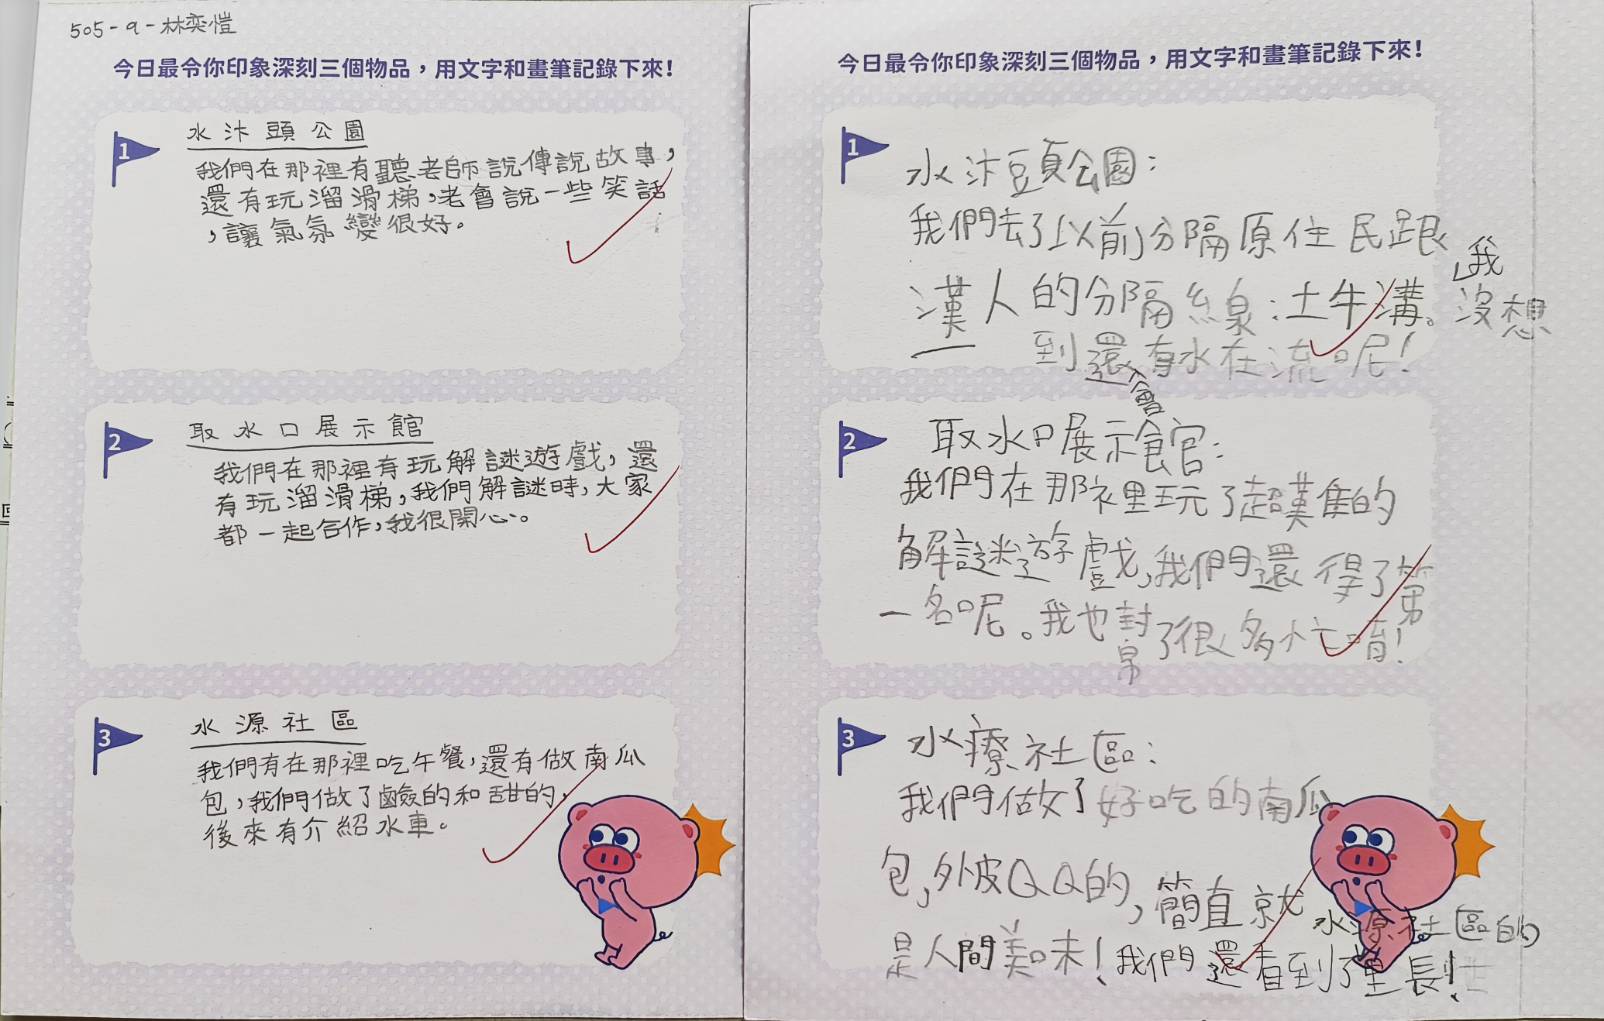 505-9-林奕愷
今日最令你印象深刻三個物品，用文字和畫筆記錄下來！
1
水汴頭公園
我們在那裡有聽老師說傳說故事，
還有玩溜滑梯，老會說一些笑話
，讓氣氛變很好。
2
取水口展示館
我們在那裡有玩解謎遊戲，還
有玩溜滑梯，我們解謎時，大家
都一起合作，我很開心。
3
水源社區
我們有在那裡吃午餐，還有做南瓜
包，我們做了鹼的和甜的，
後來有介紹水車。
今日最令你印象深刻三個物品，用文字和畫筆記錄下來！
1
水汴頭公園：
我們去了以前分隔原住民跟
漢人的分隔線：土牛溝。我沒想
到還會有水在流呢！
2
取水口展示館：
我們在那裡玩了超難的
解謎遊戲，我們還得了第
一名呢。我也幫了很多忙唷！
3
水療社區：
我們做了好吃的南瓜
包，外皮QQ的，簡直就
是人間美味！我們還看到了水源社區的
里長！